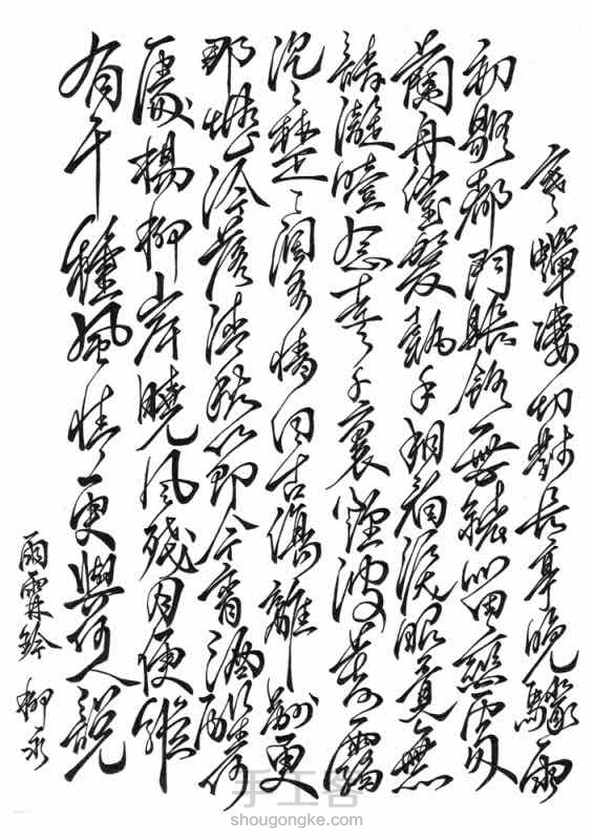 寒蟬淒切對長亭晚驟雨
初歇都門帳飲無緒留戀處
蘭舟催發執手相看淚眼竟無
語凝噎念去々千裏煙波暮靄
沉々楚天闊多情自古傷離別更
那堪冷落清秋節今宵酒醒何
處楊柳岸曉風殘月便縱
有千種風情更與何人說
雨霖鈴 柳永
手工客
shougongke.com